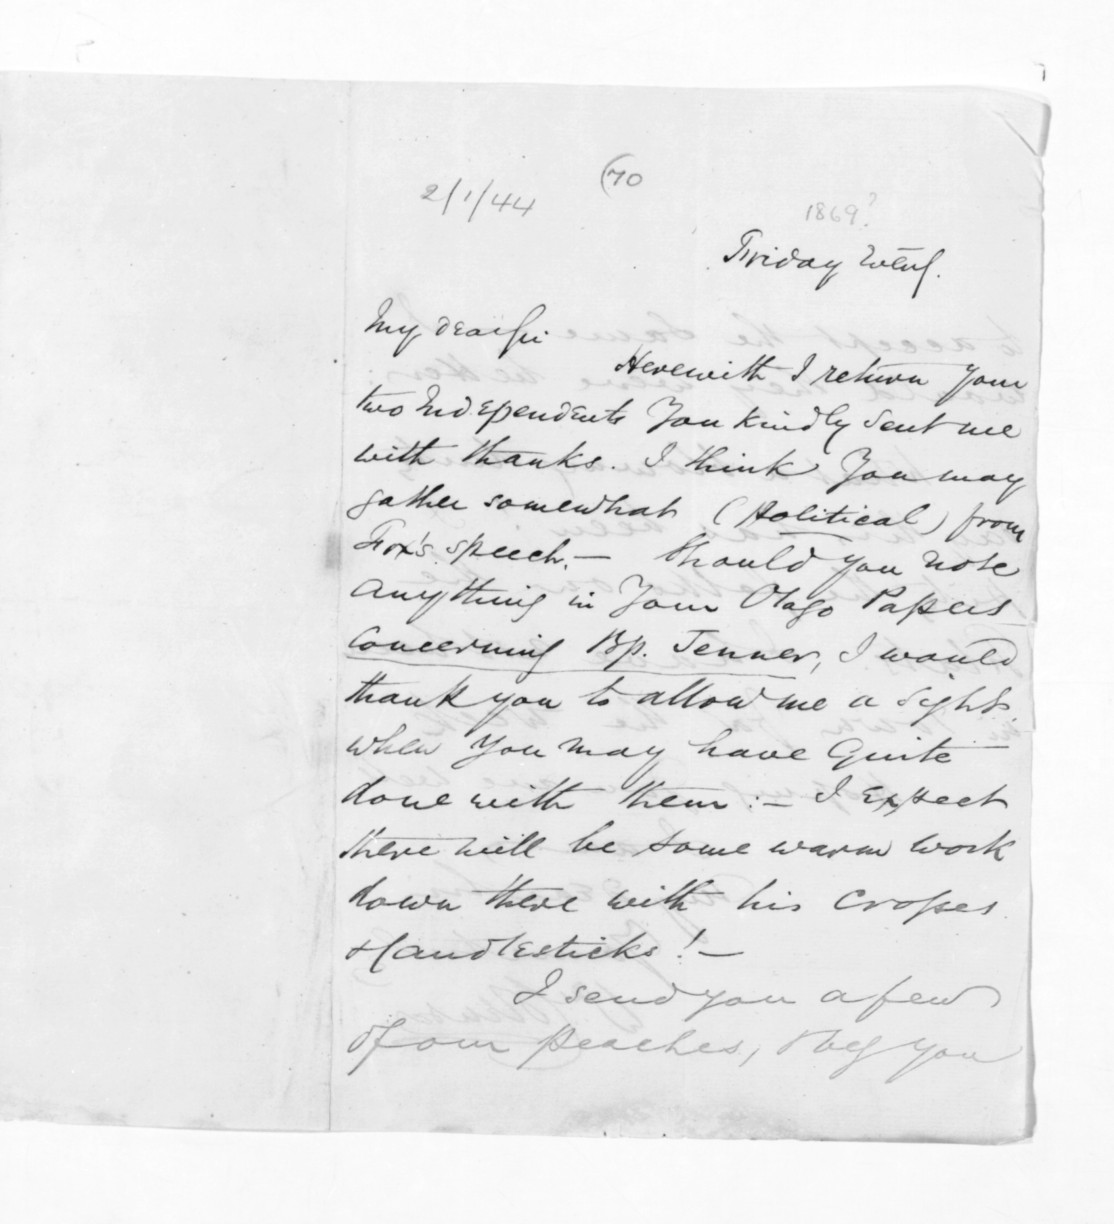 2/1/44
(70
1869?
Friday Evg.
My dear Sir
Herewith I return your
two Independents you kindly sent me
with thanks. I think you may
gather somewhat (political) from
Fox's speech. — Should you note
anything in your Otago Papers
concerning Bp. Jenner, I would
thank you to allow me a sight
when you may have quite
done with them: — I expect
there will be some warm work
down there with his Crosses
& Candlesticks! —
I send you a few
of our peaches, & beg you